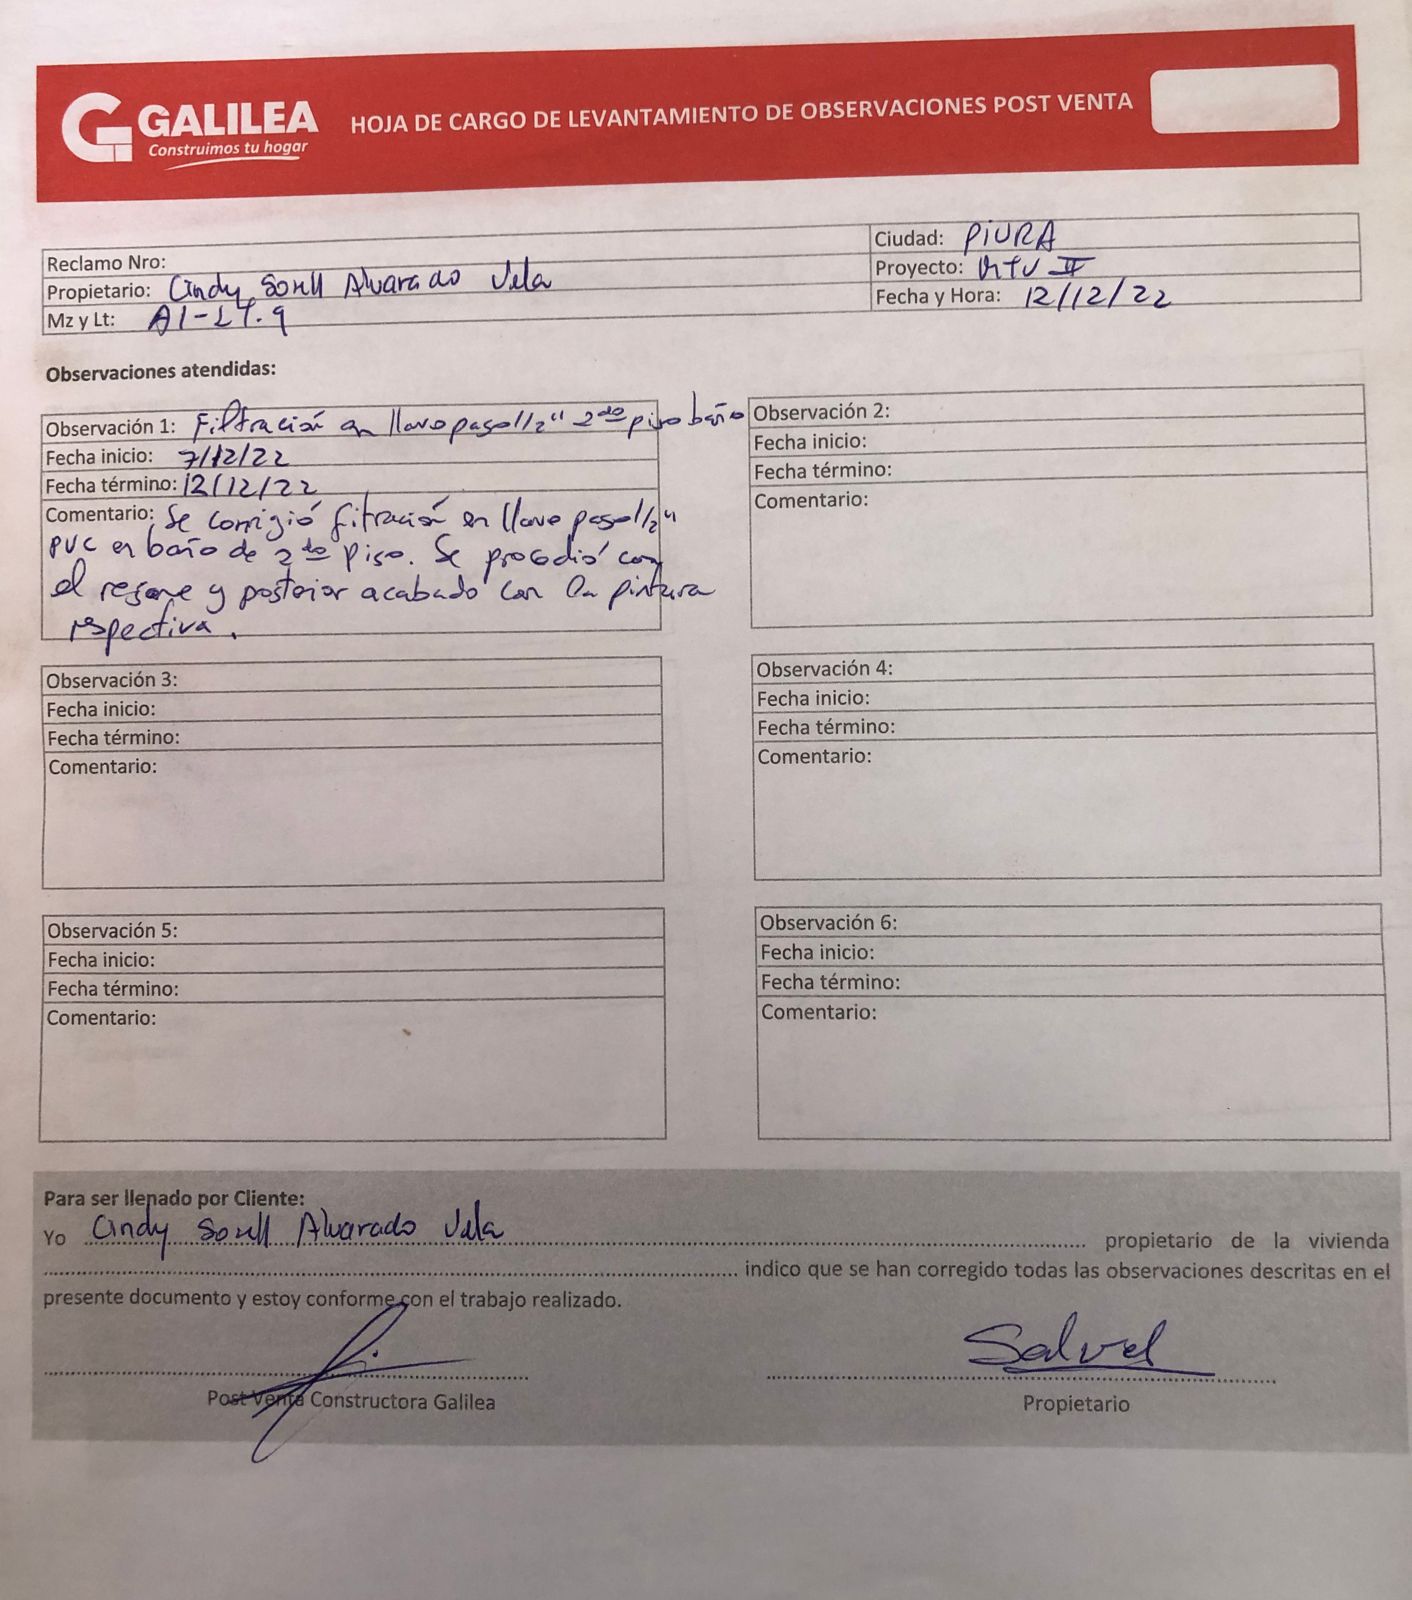 GALILEA
Construimos tu hogar
HOJA DE CARGO DE LEVANTAMIENTO DE OBSERVACIONES POST VENTA
Reclamo Nro:
Propietario: Cindy Alvarado Vela
Mz y Lt: A1-LT.9
Ciudad: PIURA
Proyecto: II
Fecha y Hora: 12/12/22
Observaciones atendidas:
Observación 1: Filtración en llave paso 1/2" 2do piso baño
Fecha inicio: 7/12/22
Fecha término: 12/12/22
Comentario: Se corrigió filtración en llave paso 1/2"
PVC en baño de 2do piso. Se procedió con
el resane y posterior acabado con la pintura
respectiva.
Observación 2:
Fecha inicio:
Fecha término:
Comentario:
Observación 3:
Fecha inicio:
Fecha término:
Comentario:
Observación 4:
Fecha inicio:
Fecha término:
Comentario:
Observación 5:
Fecha inicio:
Fecha término:
Comentario:
Observación 6:
Fecha inicio:
Fecha término:
Comentario:
Para ser llenado por Cliente:
Yo Cindy Alvarado Vela propietario de la vivienda
indico que se han corregido todas las observaciones descritas en el
presente documento y estoy conforme con el trabajo realizado.
Post Venta Constructora Galilea
Propietario